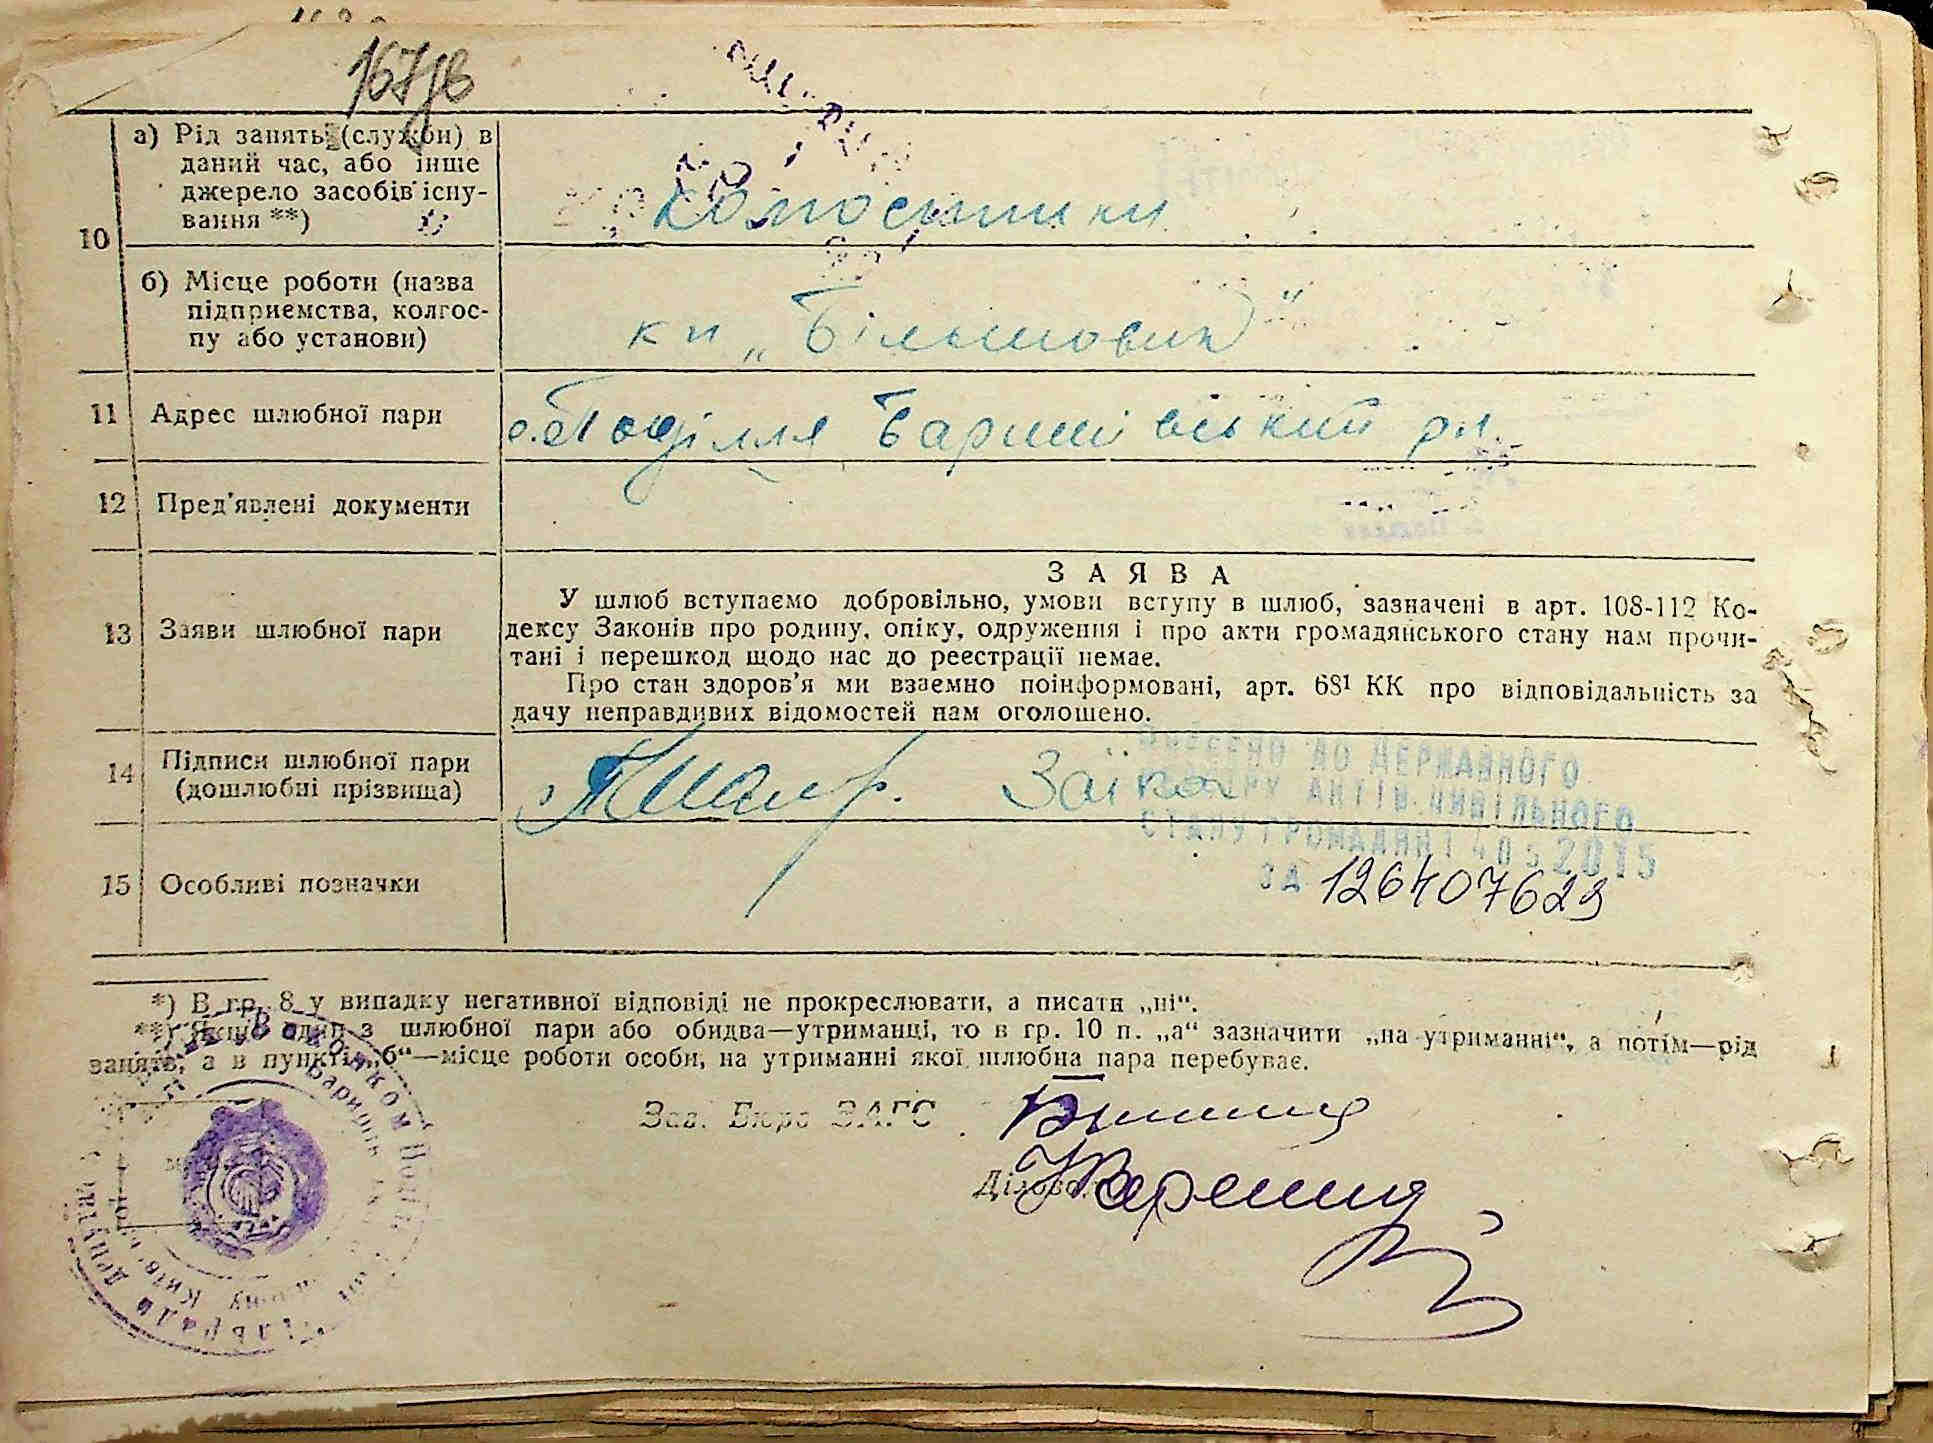 167зв
10
а) Рід занять (служби) в
даний час, або інше
джерело засобів існу-
вання **)
колоспники
б) Місце роботи (назва
підприємства, колгос-
пу або установи)
кп „Більшовик"
11 Адрес шлюбної пари
с. Поділля Баришівський рн.
12 Пред'явлені документи
13 Заяви шлюбної пари
ЗАЯВА
У шлюб вступаємо добровільно, умови вступу в шлюб, зазначені в арт. 108-112 Ко-
дексу Законів про родину, опіку, одруження і про акти громадянського стану нам прочи-
тані і перешкод щодо нас до реестрації немає.
Про стан здоров'я ми взаемно поінформовані, арт. 68¹ КК про відповідальність за
дачу неправдивих відомостей нам оголошено.
14 Підписи шлюбної пари
(дошлюбні прізвища)
Заїка
ВНЕСЕНО ДО ДЕРЖАВНОГО
РЕЄСТРУ АКТІВ ЦИВІЛЬНОГО
СТАНУ ГРОМАДЯН 2015
ЗА 126407629
15 Особливі позначки
*) В гр. 8 у випадку негативної відповіді не прокреслювати, а писати „ні“.
**) Якщо один з шлюбної пари або обидва—утриманці, то в гр. 10 п. „а“ зазначити „на утриманні“, а потім—рід
занять, а в пункті „б“—місце роботи особи, на утриманні якої шлюбна пара перебуває.
Зав. Бюро ЗАГС
Діловод